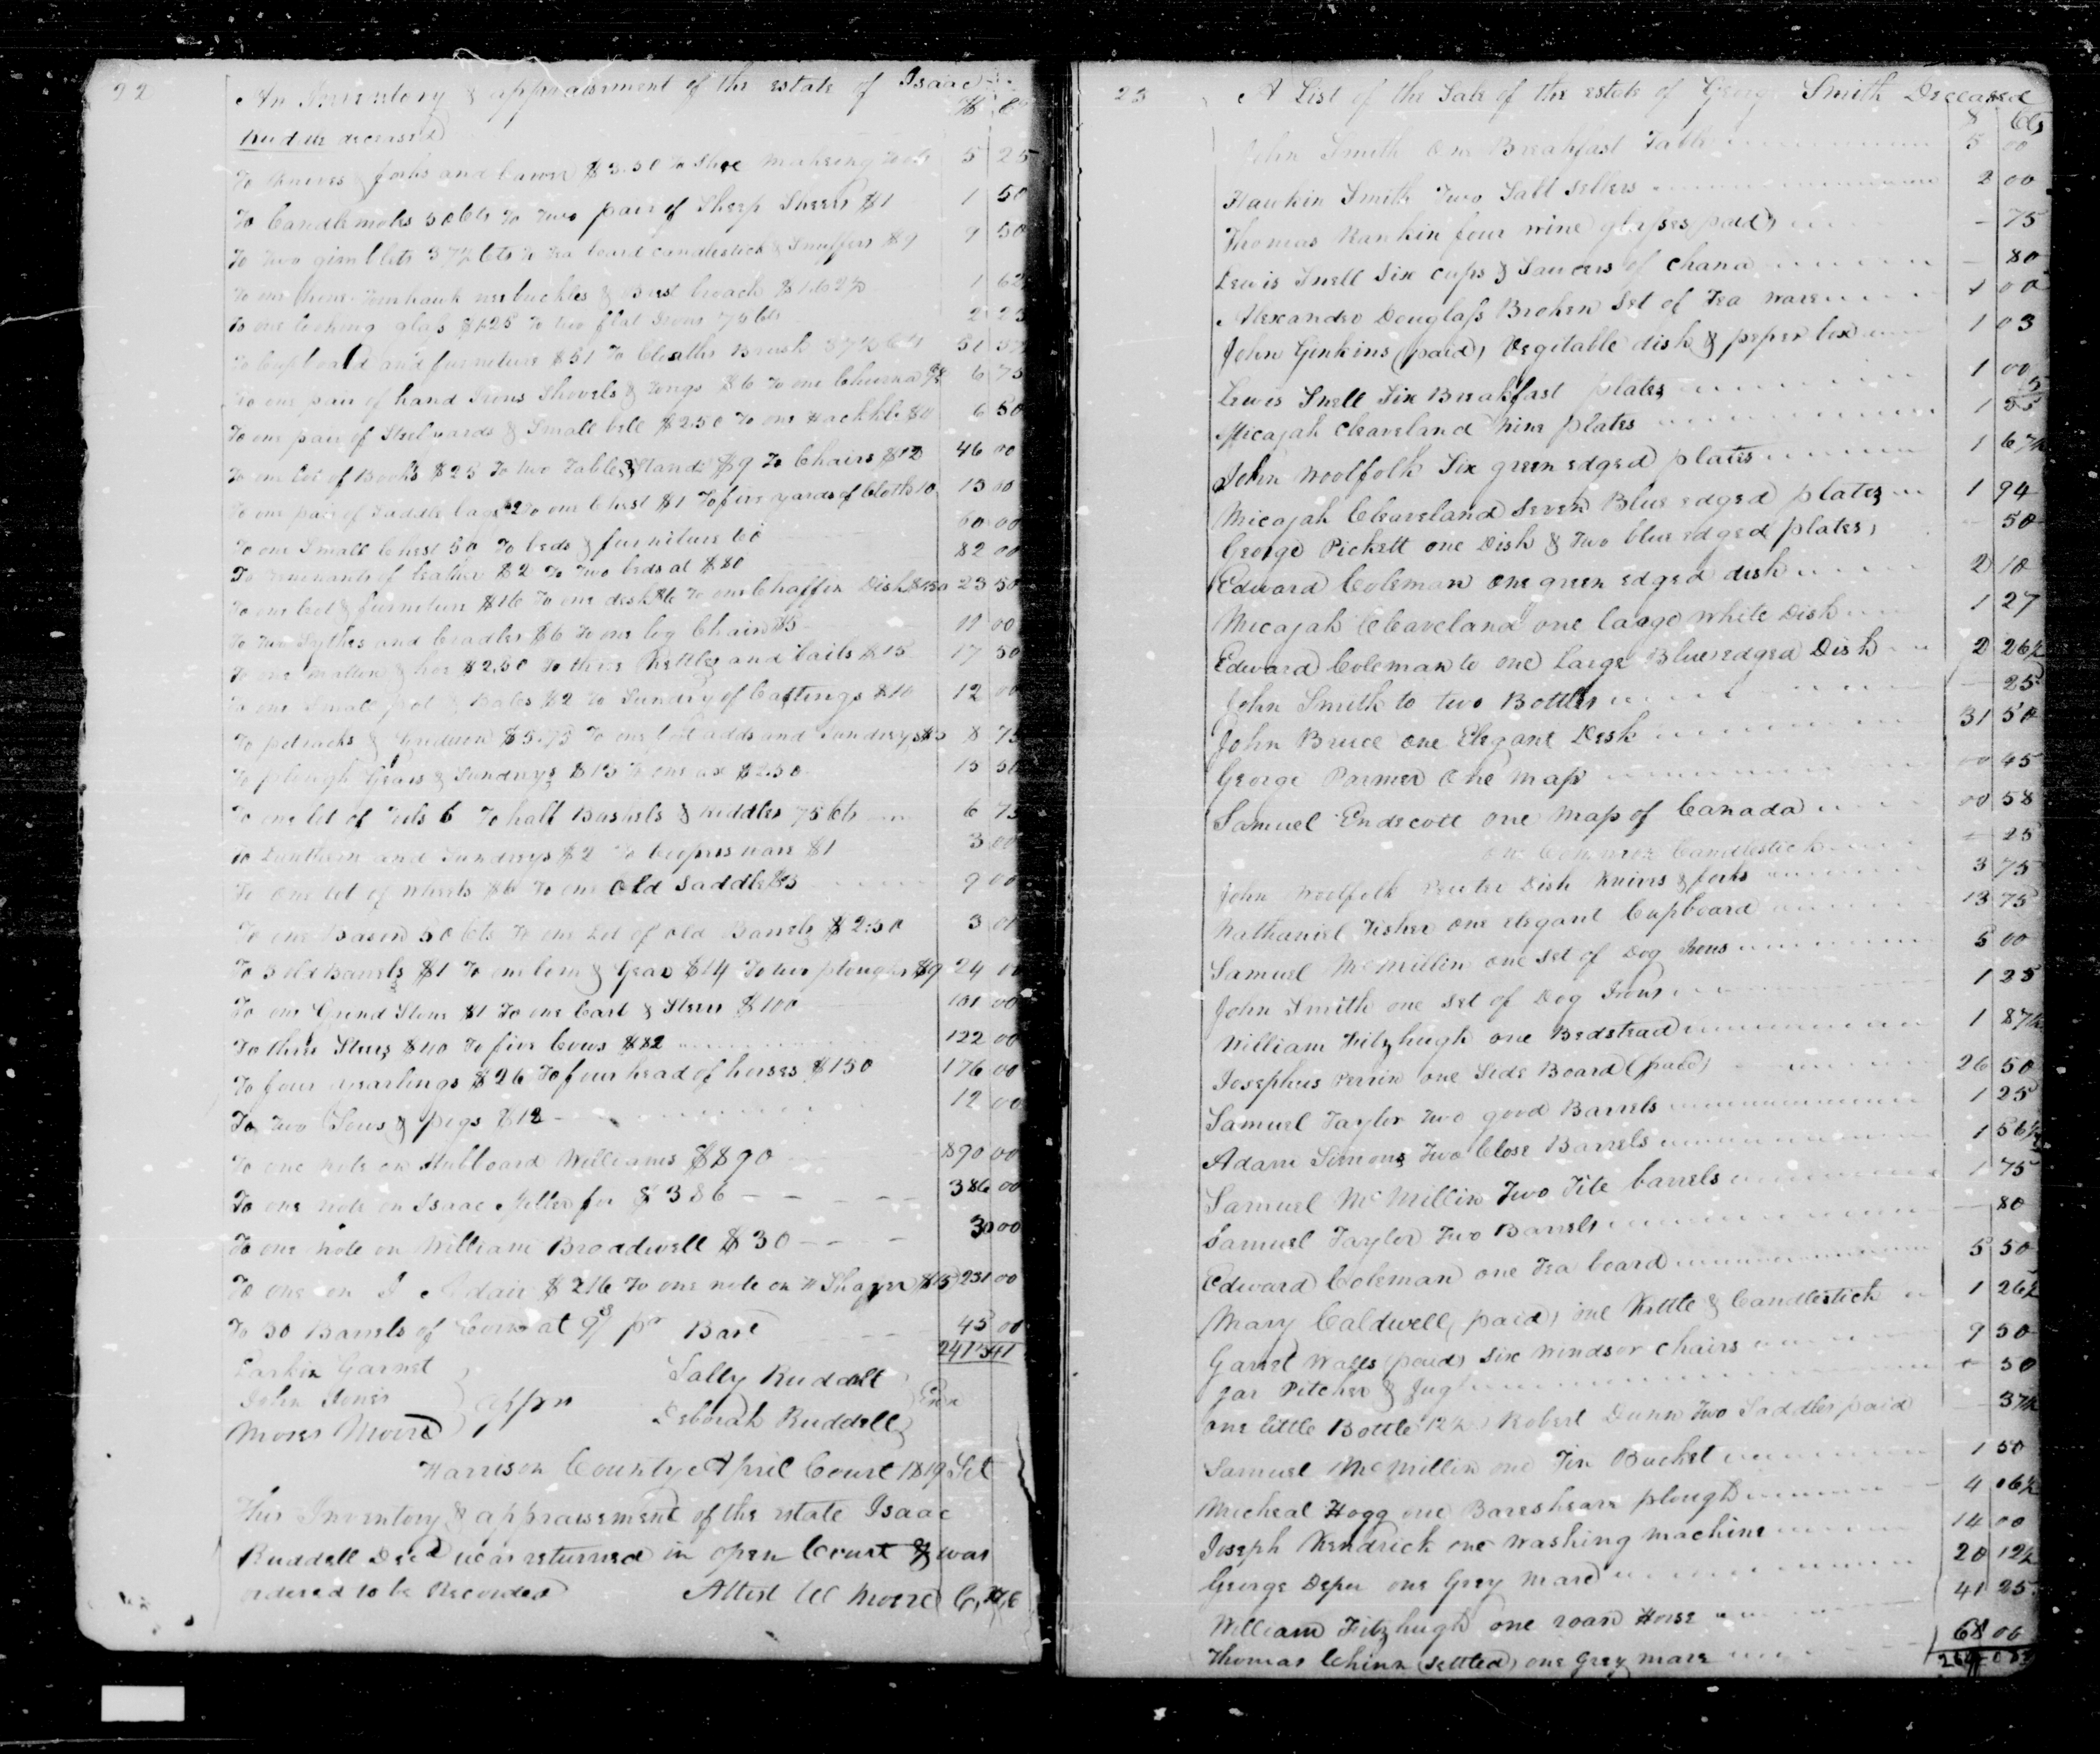 22
An Inventory & appraisement of the estate of Isaac
$ C
Ruddle deceased
To Knives & forks and $3.50 To Shoe Makeing Tools 5 25
To Candlemoles 50 Cts To two pair of Sheep Shears $1 1 50
To two gimblets 37½ Cts To Tea board candlestick & Snuffers $9 9 50
To one Tomhawk buckles & Brest broach $1.62½ 1 62
To one looking glass $1.25 To two flat Irons 2
To Cupboard and furniture $51 To Cloaths Brush 37½ Cts 51 37
To one pair of hand Irons Shovels & tongs $6 To one 6 75
To one pair of Steelyards & Small bell $2.50 To one Hackkle 6 50
To one lot of Books $25 To two Tables & Stands $9 To Chairs $12 46 00
To one pair of Saddle bags $2 To one Chest $1 To five yards of Cloth 10 13 00
To one Small Chest 50 To beds & furniture 60 60 00
To remenants of leather $2 To two beds at $80 82 00
To one bed & furniture $16 To one desk $6 To one Chaffen Dish $1.50 23 50
To two Sythes and Cradles $6 To one log Chain $5 11 00
To one & hoe $2.50 To three Kettles and bails $15 17 50
To one Small pot & Bales $2 To Sundry of Castings $10 12 00
To potracks & $5.75 To one and Sundrys $3 8 75
To plough Gears & Sundrys $13 To one ax $2.50 15 50
To one lot of Tools 6 To half Bushels & Riddles 75 Cts 6 75
To Lanthern and Sundrys $2 To Coopers ware $1 3 00
To one lot of wheels $6 To one Old Saddle $3 9 00
To one Bason 50 Cts To one Lot of old Barrels $2.50 3 00
To 3 old Barrels $1 To & Gear $14 To two ploughs $9 24 00
To one Grind Stone $1 To one Cart & Steers $100 101 00
To three Steers $40 To five Cows $82 122 00
To four yearlings $26 To four head of horses $150 176 00
To two Sows & pigs $12 12 00
To one note on Hubboard Williams $890 890 00
To one note on Isaac Miller for $386 386 00
To one note on William Broadwell $30 30 00
To one on J Adair $216 To one note on $15 231 00
To 30 Barrels of Corn at 9/ pr Barl 45 00
Larkin Garnet
John Jones
Moses Moore
Sally Ruddell
Deborah Ruddell
Harrison County April Court 1819 Sct
This Inventory & appraisement of the estate Isaac
Ruddell Decd was returned in open Court & was
ordered to be Recorded Attest W Moore C,H,C
23
A List of the Sale of the estate of Georg Smith Deceased
$ Cts
John Smith One Breakfast Table 5 00
Hawkin Smith Two Salt Sellers 2 00
Thomas Rankin four wine glasses (paid) - 75
Lewis Snell Six cups & Saucers of Chana - 80
Alexander Douglass Broken Set of Tea ware 1 00
John Ginkins (paid) Vegitable dish & peper box 1 03
Lewis Snell Six Breakfast plates 1 00
Micajah Cleaveland Nine plates 1
John Woolfolk Six green edged plates 1
Micajah Cleaveland Seven Blue edged plates 1 94
George Pickett one Dish & Two blue edged plates 50
Edward Coleman one green edged dish 2 10
Micajah Cleaveland one large White Dish 1 27
Edward Coleman to one Large Blue edged Dish 2 26½
John Smith to two Bottles 25
John Bruce one Elegant Desk 31 50
George Parmer One Map 00 45
Samuel Endecott One Map of Canada 00 58
one Common Candlestick 25
John Woolfolk Pewter Dish Knives & forks 3 75
Nathaniel Fisher one elegant Cupboard 13 75
Samuel McMillin one set of Dog Irons 5 00
John Smith one set of Dog Irons 1 25
William Fitzhugh one Bedstead 1 87½
Josephus Perrin one Side Board (paid) 26 50
Samuel Taylor two good Barrels 1 25
Adam Simons Two Close Barrels 1 56½
Samuel McMillin Two Tite barrels 1 75
Samuel Taylor Two Barrels 80
Edward Coleman one Tea board 5 50
Mary Caldwell (paid) one Kettle & Candlestick 1 26½
Garret Walls (paid) six Windsor Chairs 9 50
Jar Pitcher & Jug 50
one little Bottle 12½ Robert Dunn Two Saddles paid 37½
Samuel McMillin one Tin Bucket 1 50
Micheal Hogg one Bareshear plough 4 06½
Joseph Kendrick one Washing machine 14 00
George Deper one Grey Mare 20 12½
William Fitzhugh one roan Horse 41 25
Thomas Chinn (settled) one Grey mare 68 00